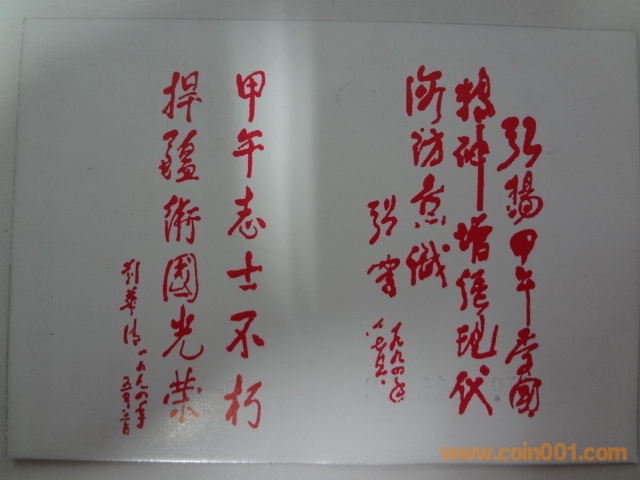 弘揚甲午爱國
精神增强现代
海防意識
张
一九九四年
甲午志士不朽
捍疆衛國光荣
劉華清 一九九四年
五月
www.coin001.com